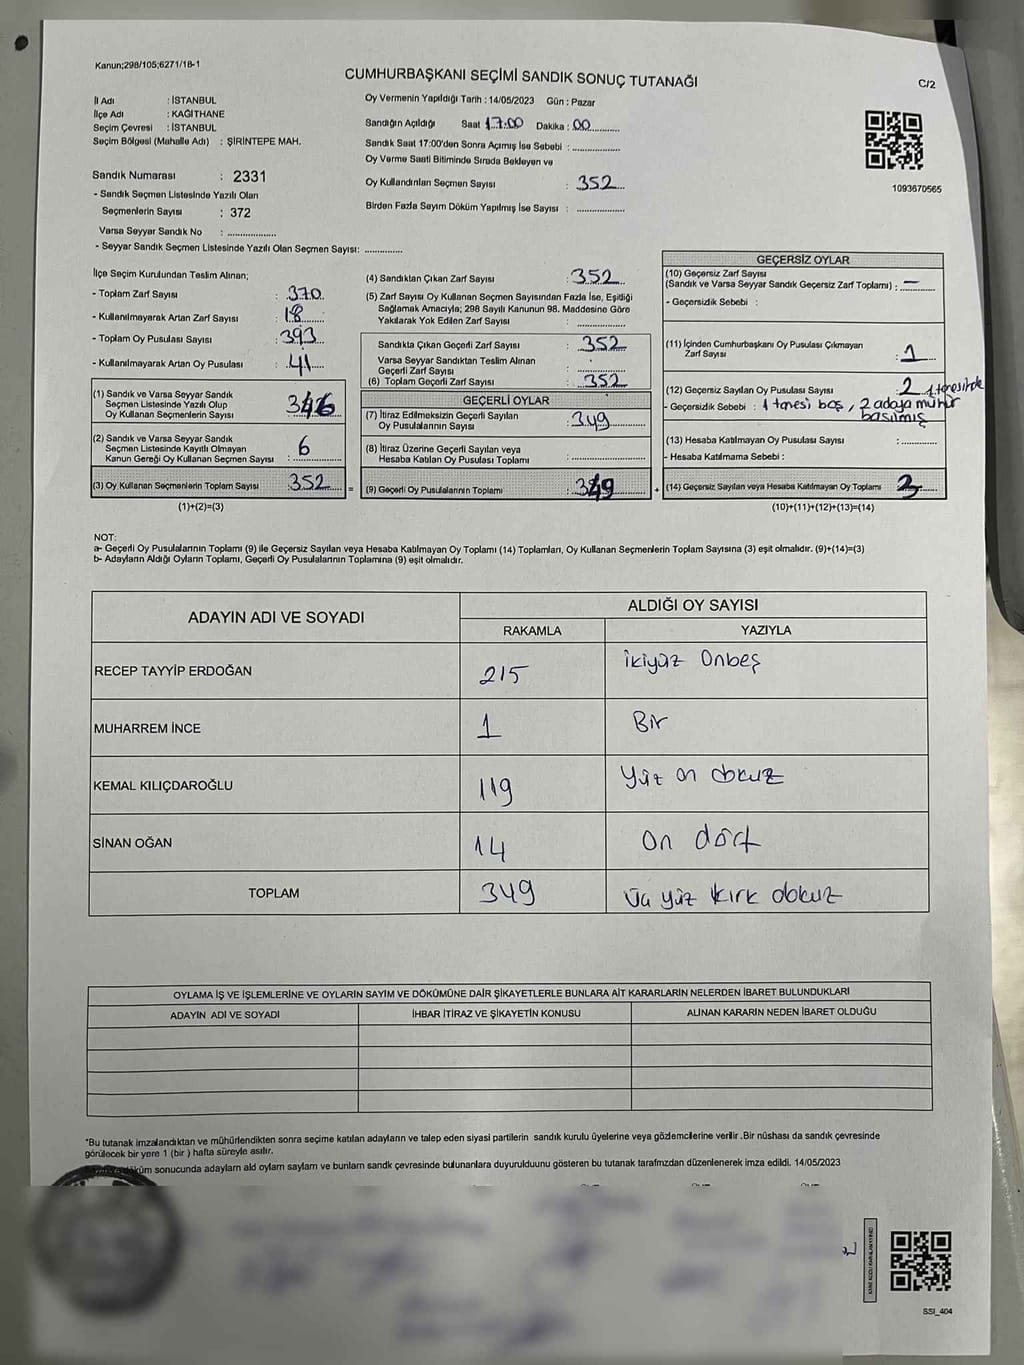 Kanun;298/105;6271/18-1
CUMHURBAŞKANI SEÇİMİ SANDIK SONUÇ TUTANAĞI
C/2
İl Adı : İSTANBUL
İlçe Adı : KAĞITHANE
Seçim Çevresi : İSTANBUL
Seçim Bölgesi (Mahalle Adı) : ŞİRİNTEPE MAH.
Sandık Numarası : 2331
- Sandık Seçmen Listesinde Yazılı Olan
Seçmenlerin Sayısı : 372
Varsa Seyyar Sandık No : ..............
- Seyyar Sandık Seçmen Listesinde Yazılı Olan Seçmen Sayısı: ............
Oy Vermenin Yapıldığı Tarih : 14/05/2023 Gün : Pazar
Sandığın Açıldığı Saat 17:00 Dakika : 00
Sandık Saat 17:00'den Sonra Açımış İse Sebebi : ..............
Oy Verme Saati Bitiminde Sırada Bekleyen ve
Oy Kullandırılan Seçmen Sayısı : 352
Birden Fazla Sayım Döküm Yapılmış İse Sayısı : ..............
1093670565
İlçe Seçim Kurulundan Teslim Alınan;
- Toplam Zarf Sayısı : 370
- Kullanılmayarak Artan Zarf Sayısı : 18
- Toplam Oy Pusulası Sayısı : 393
- Kullanılmayarak Artan Oy Pusulası : 41
(1) Sandık ve Varsa Seyyar Sandık
Seçmen Listesinde Yazılı Olup
Oy Kullanan Seçmenlerin Sayısı : 346
(2) Sandık ve Varsa Seyyar Sandık
Seçmen Listesinde Kayıtlı Olmayan
Kanun Gereği Oy Kullanan Seçmen Sayısı : 6
(3) Oy Kullanan Seçmenlerin Toplam Sayısı : 352 =
(1)+(2)=(3)
(4) Sandıktan Çıkan Zarf Sayısı : 352
(5) Zarf Sayısı Oy Kullanan Seçmen Sayısından Fazla İse, Eşitliği
Sağlamak Amacıyla; 298 Sayılı Kanunun 98. Maddesine Göre
Yakılarak Yok Edilen Zarf Sayısı : ..............
Sandıkta Çıkan Geçerli Zarf Sayısı : 352
Varsa Seyyar Sandıktan Teslim Alınan
Geçerli Zarf Sayısı : ..............
(6) Toplam Geçerli Zarf Sayısı : 352
GEÇERLİ OYLAR
(7) İtiraz Edilmeksizin Geçerli Sayılan
Oy Pusulalarının Sayısı : 349
(8) İtiraz Üzerine Geçerli Sayılan veya
Hesaba Katılan Oy Pusulası Toplamı : ..............
(9) Geçerli Oy Pusulalarının Toplamı : 349 +
GEÇERSİZ OYLAR
(10) Geçersiz Zarf Sayısı
(Sandık ve Varsa Seyyar Sandık Geçersiz Zarf Toplamı) : —
- Geçersizlik Sebebi :
(11) İçinden Cumhurbaşkanı Oy Pusulası Çıkmayan
Zarf Sayısı : 1
(12) Geçersiz Sayılan Oy Pusulası Sayısı : 2 1 tanesinde
- Geçersizlik Sebebi : 1 tanesi boş, 2 adaya mühür
basılmış
(13) Hesaba Katılmayan Oy Pusulası Sayısı : ..............
- Hesaba Katılmama Sebebi :
(14) Geçersiz Sayılan veya Hesaba Katılmayan Oy Toplamı 3
(10)+(11)+(12)+(13)=(14)
NOT:
a- Geçerli Oy Pusulalarının Toplamı (9) ile Geçersiz Sayılan veya Hesaba Katılmayan Oy Toplamı (14) Toplamları, Oy Kullanan Seçmenlerin Toplam Sayısına (3) eşit olmalıdır. (9)+(14)=(3)
b- Adayların Aldığı Oyların Toplamı, Geçerli Oy Pusulalarının Toplamına (9) eşit olmalıdır.
ADAYIN ADI VE SOYADI
ALDIĞI OY SAYISI
RAKAMLA YAZIYLA
RECEP TAYYİP ERDOĞAN 215 ikiyüz Onbeş
MUHARREM İNCE 1 Bir
KEMAL KILIÇDAROĞLU 119 Yüz on dokuz
SİNAN OĞAN 14 on dört
TOPLAM 349 Üç yüz kırk dokuz
OYLAMA İŞ VE İŞLEMLERİNE VE OYLARIN SAYIM VE DÖKÜMÜNE DAİR ŞİKAYETLERLE BUNLARA AİT KARARLARIN NELERDEN İBARET BULUNDUKLARI
ADAYIN ADI VE SOYADI İHBAR İTİRAZ VE ŞİKAYETİN KONUSU ALINAN KARARIN NEDEN İBARET OLDUĞU
*Bu tutanak imzalandıktan ve mühürlendikten sonra seçime katılan adayların ve talep eden siyasi partilerin sandık kurulu üyelerine veya gözlemcilerine verilir.Bir nüshası da sandık çevresinde
görülecek bir yere 1 (bir ) hafta süreyle asılır.
döküm sonucunda adayların ald oyların sayların ve bunların sandk çevresinde bulunanlara duyurulduunu gösteren bu tutanak tarafmzdan düzenlenerek imza edildi. 14/05/2023
SSI_404